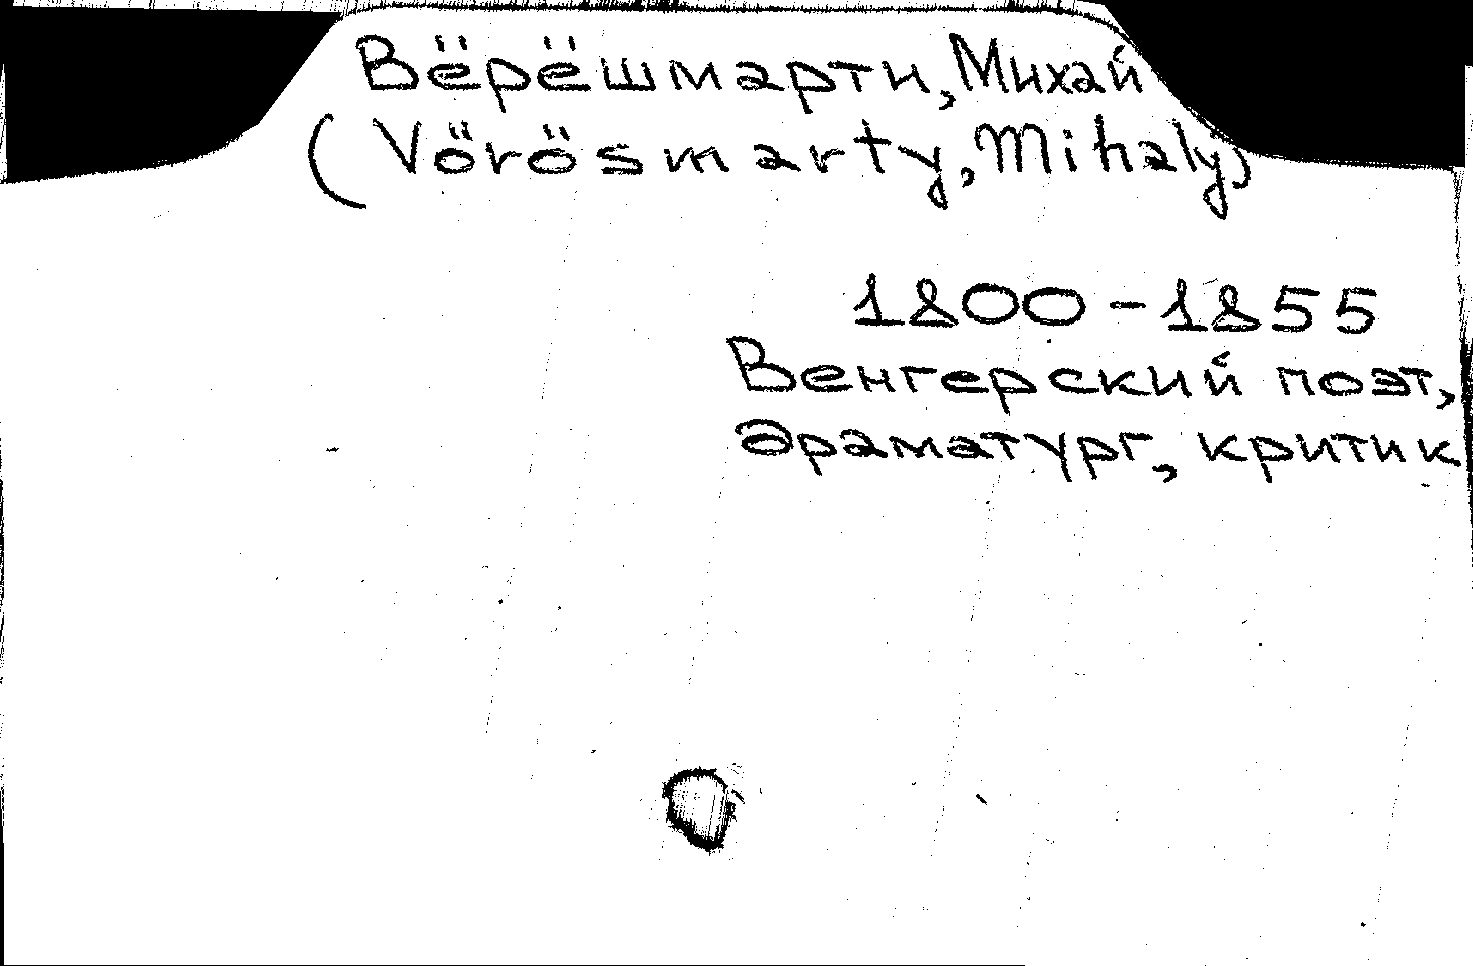 Вёрёшмарти, Михай
(Vörösmarty, Mihaly)
1800-1855
Венгерский поэт,
драматург, критик